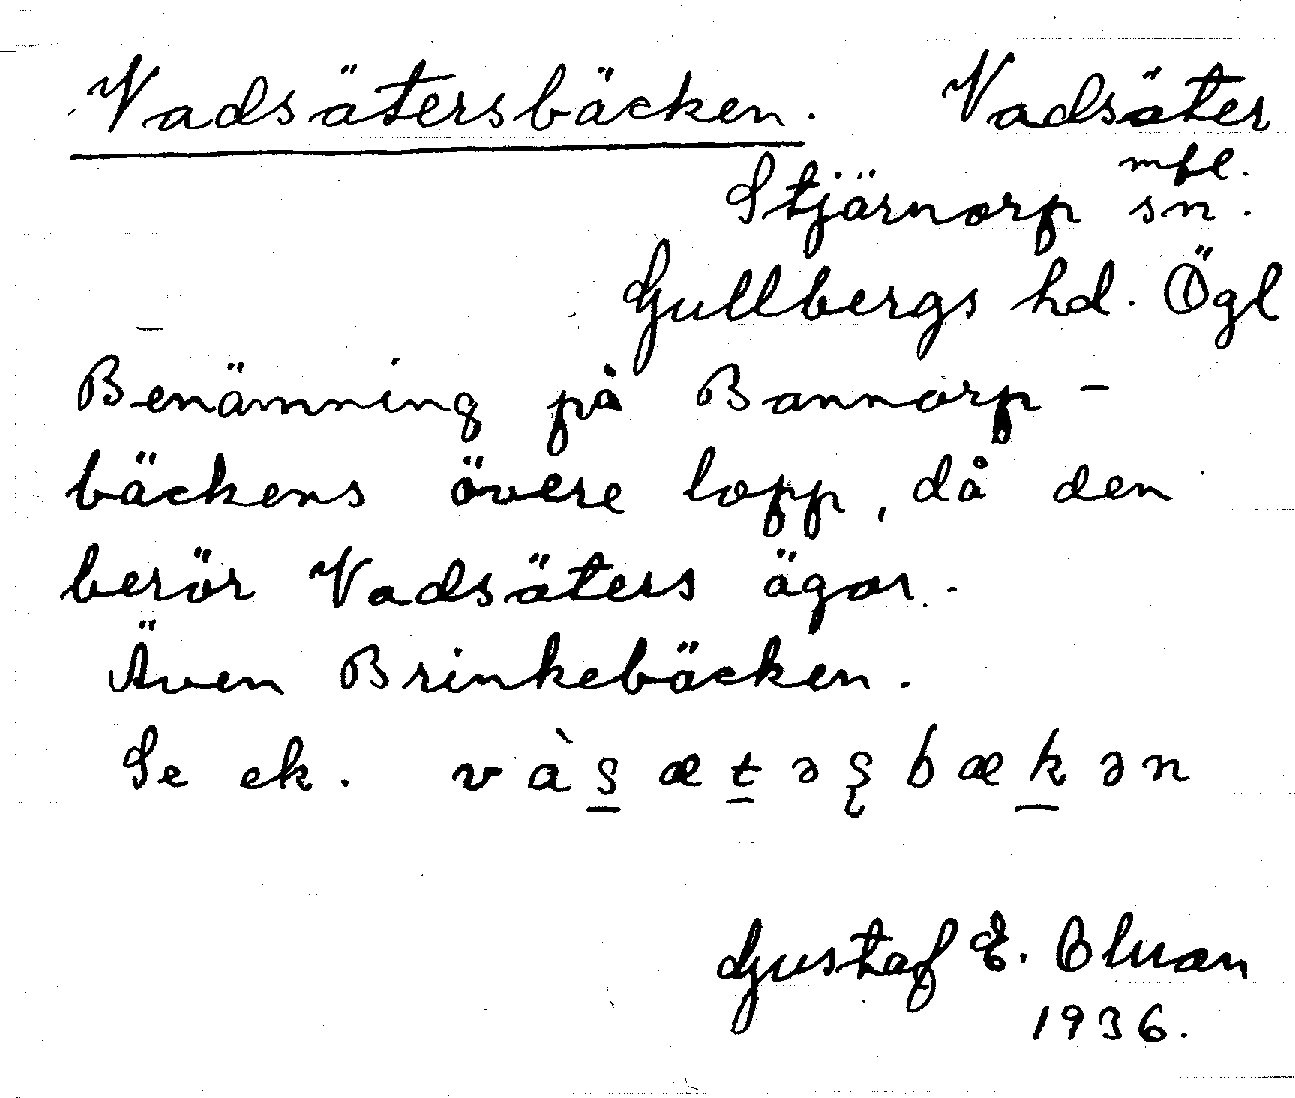 Vadsätersbäcken. Vadsäter
mfl.
Stjärnorp sn.
Gullbergs hd. Ögl
Benämning på Bannorp-
bäckens övere lopp, då den
berör Vadsäters ägor.
Även Brinkebäcken.
Se ek. vàs̲æt̲əʂbæk̲ən
Gustaf E.
1936.